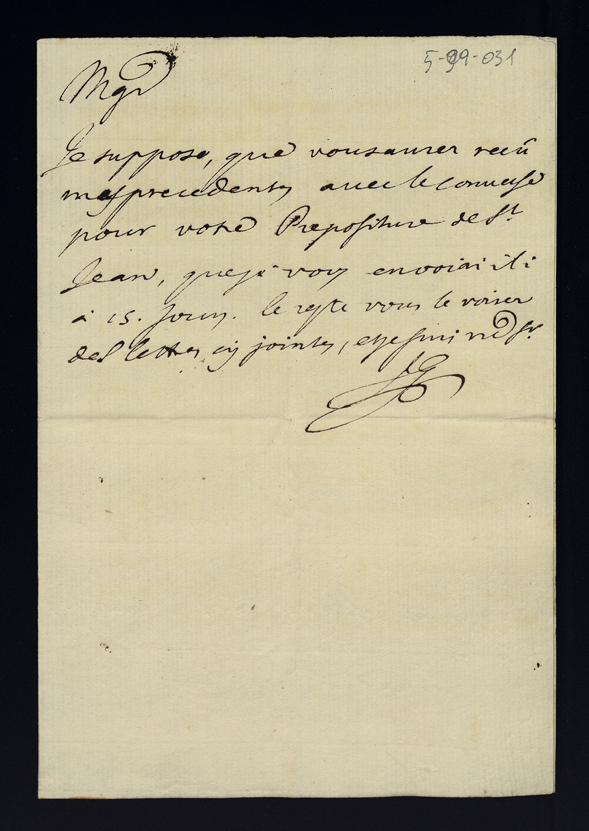 5-99-031
Mgr
Je suppose, que vous aurez recû
mes precedentes avec le
pour votre Prepositure de St.
Jean, que je vous envoiai il i
a 15. Jours. le reste vous le
des lettres cy jointes, et je suis